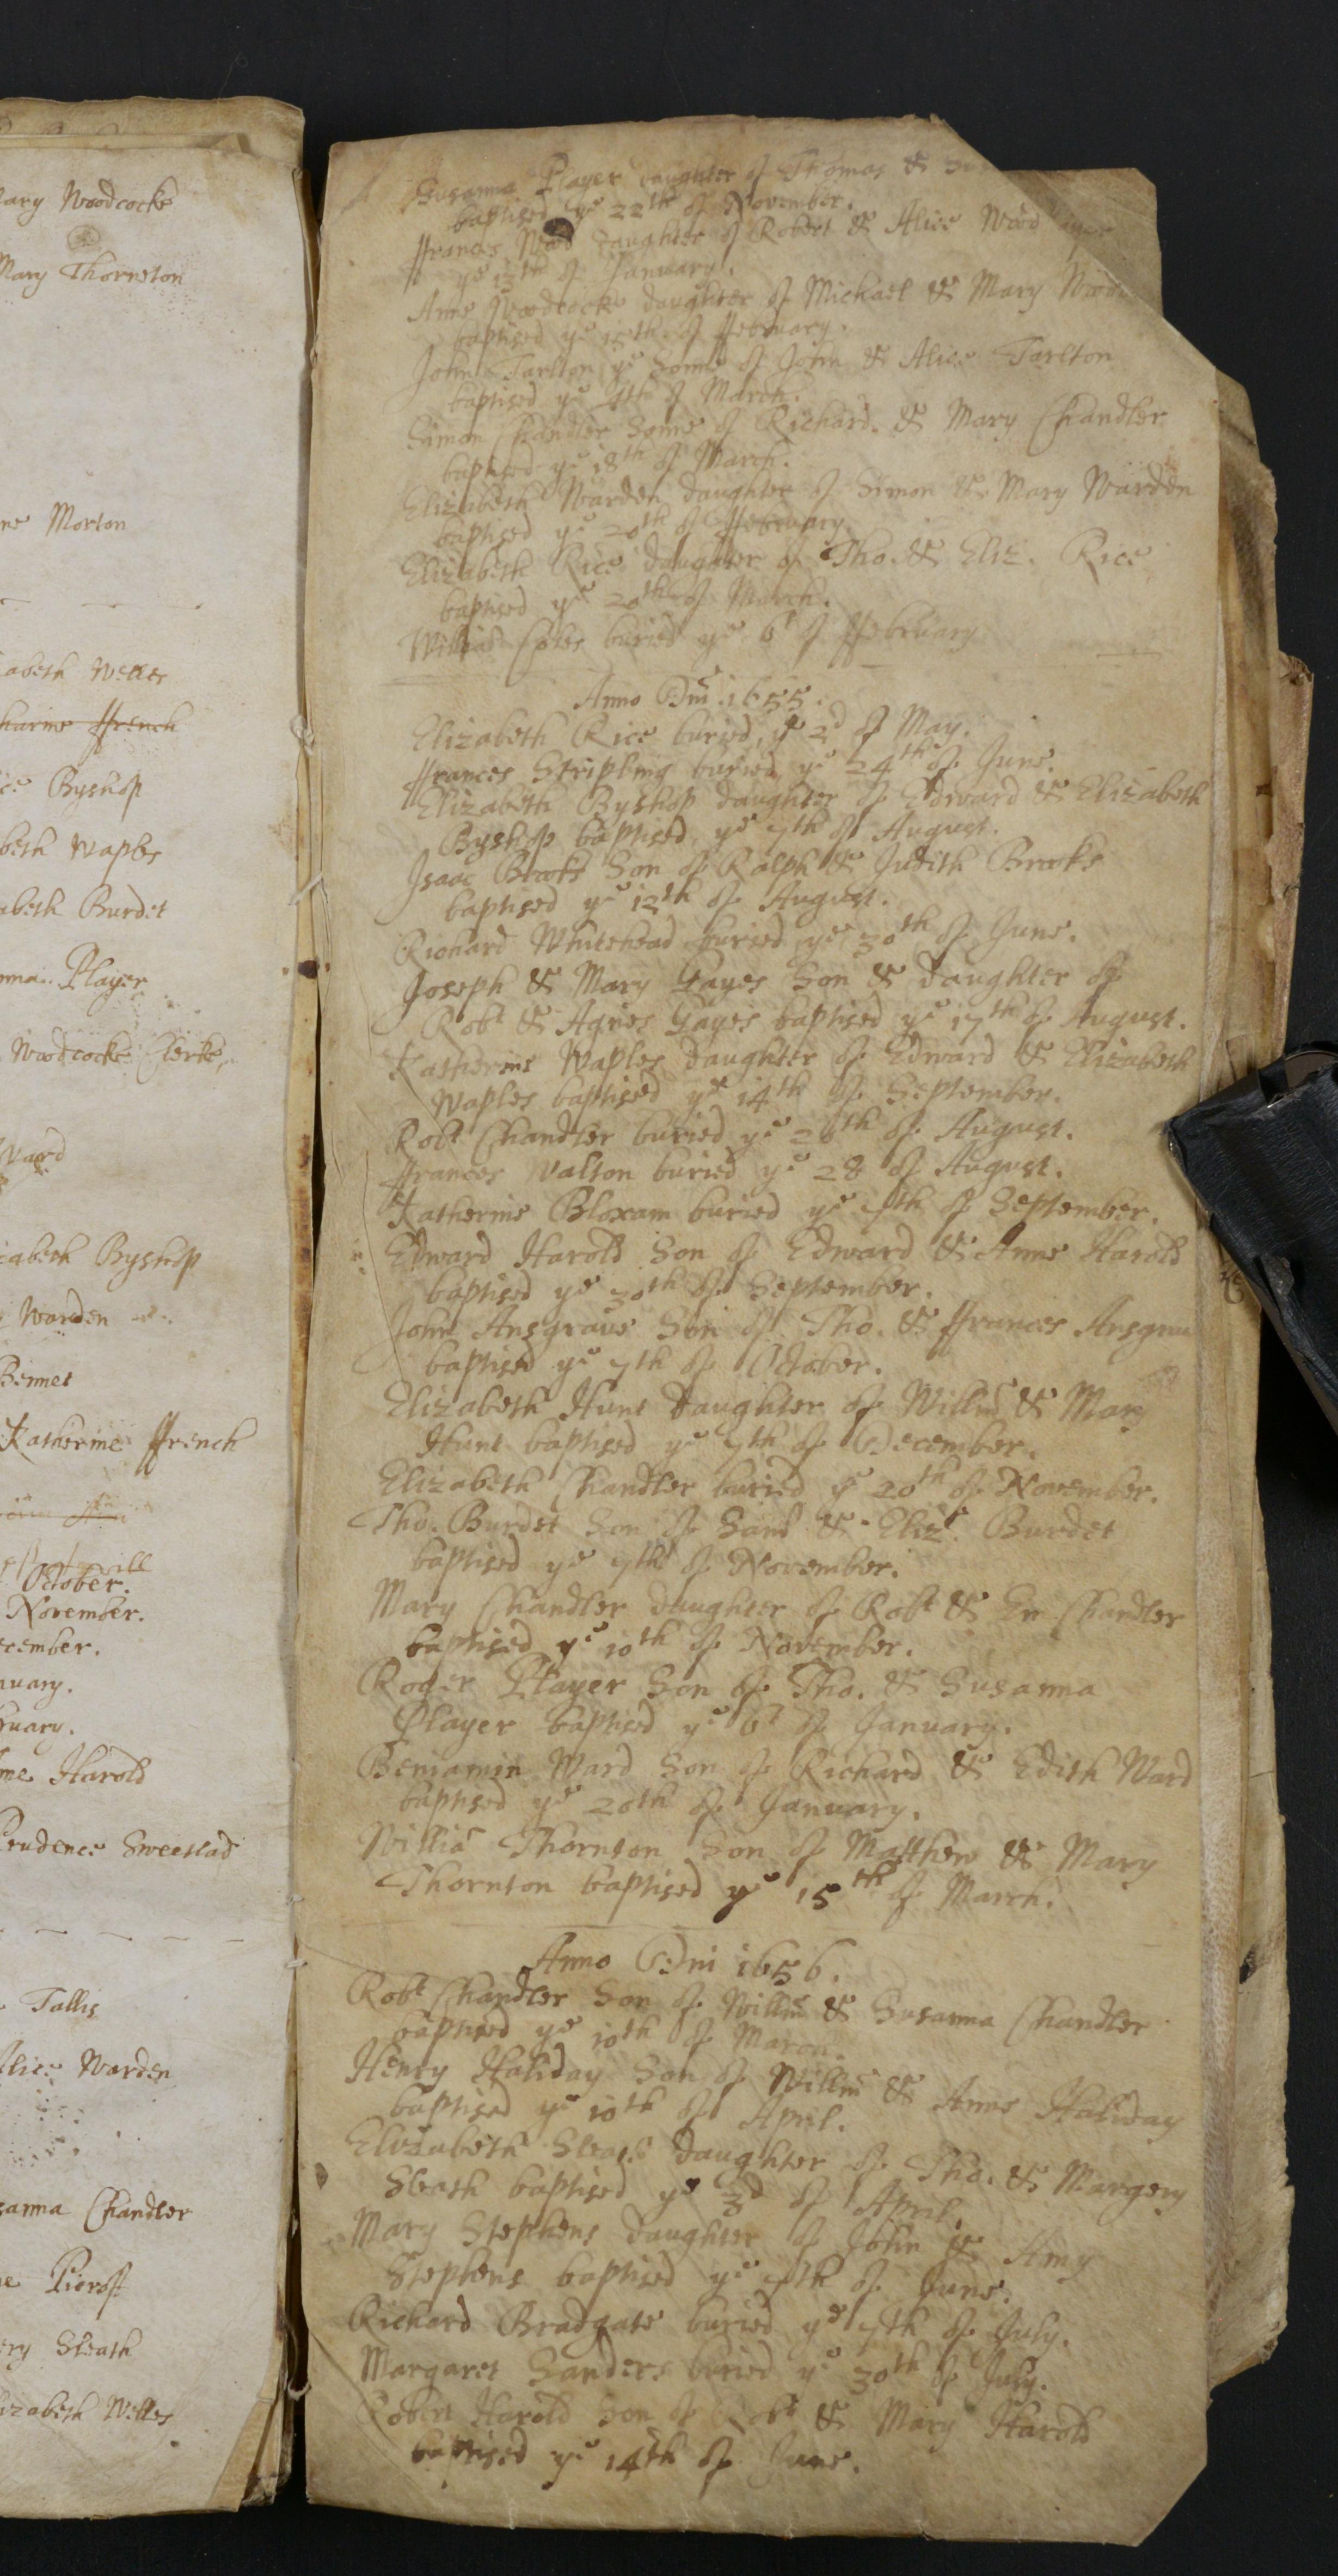 ary Woodcocke
Mary Thorneton
ne Morton
abeth Welles
harine ffrench
ce Byshop
beth Waples
abeth Burdet
nna Player
Woodcocke Clerke
Ward
zabeth Byshop
Warden
Bennet
Katherine ffrench
October.
November.
ecember.
nuary.
ruary.
ne Harold
Prudence Sweetlad
Tallis
lice Warden
sanna Chandler
ery Sleath
lizabeth Welles
Susanna Player daughter of Thomas &
baptised ye 22th of November.
ffrances Wood daughter of Robert & Alice Wood
ye 12th of January.
Anne Woodcocke daughter of Michael & Mary Wood
baptised ye 15th of ffebruary.
John Tarlton ye Sonne of John & Alice Tarlton
baptised ye 4th of March.
Simon Chandler Sonne of Richard. & Mary Chandler
baptised ye 18th of March.
Elizabeth Warden daughter of Simon & Mary Warden
baptised ye 20th of ffebruary
Elizabeth Rice daughter of Tho. & Eliz. Rice
baptised ye 20th of March.
buried ye 6t of ffebruary
Anno Dni 1655.
Elizabeth Rice buried, ye 2d of May.
ffrances Stripling buried ye 24th of June.
Elizabeth Byshop daughter of Edward & Elizabeth
Byshop baptised ye 7th of August.
Isaac Brooks Son of Ralph & Judith Brooks
baptised ye 12th of August.
Richard Whitehead buried ye 30th of June.
Joseph & Mary Gayes Son & daughter of
Robt & Agnes Gayes baptised ye 17th of August.
Katherine Waples daughter of Edward & Elizabeth
Waples baptised ye 14th of September.
Robt Chandler buried ye 26th of August.
ffrances Walton buried ye 28 of August.
Katherine Bloxam buried ye 7th of September.
Edward Harold Son of Edward & Anne Harold
baptised ye 30th of September.
John Ansgrave Son of Tho. & ffrances Ansgrav
baptised ye 7th of October.
Elizabeth Hunt daughter of Willm & Mary
Hunt baptised ye 7th of December.
Elizabeth Chandler buried ye 20th of November.
Tho. Burdet Son of Saml & Eliz. Burdet
baptised ye 7th of November.
Mary Chandler daughter of Robt & En Chandler
baptised ye 10th of November.
Roger Player Son of Tho. & Susanna
Player baptised ye 6t of January.
Benjamin Ward Son of Richard & Edith Ward
baptised ye 20th of January.
Williā Thornton Son of Matthew & Mary
Thornton baptised ye 15th of March.
Anno Dni 1656.
Robt Chandler Son of Willm & Susanna Chandler
baptised ye 10th of March.
Henry Haliday Son of Willm & Anne Haliday
baptised ye 10th of April.
Elizabeth Sleath daughter of Tho. & Margery
Sleath baptised ye 3d of April.
Mary Stephens daughter of John & Amy
Stephens baptised ye 7th of June.
Richard Bradgate buried ye 7th of July.
Margaret Sanders buried ye 30th of July.
Robert Harold Son of Robt & Mary Harold
baptised ye 14th of June.